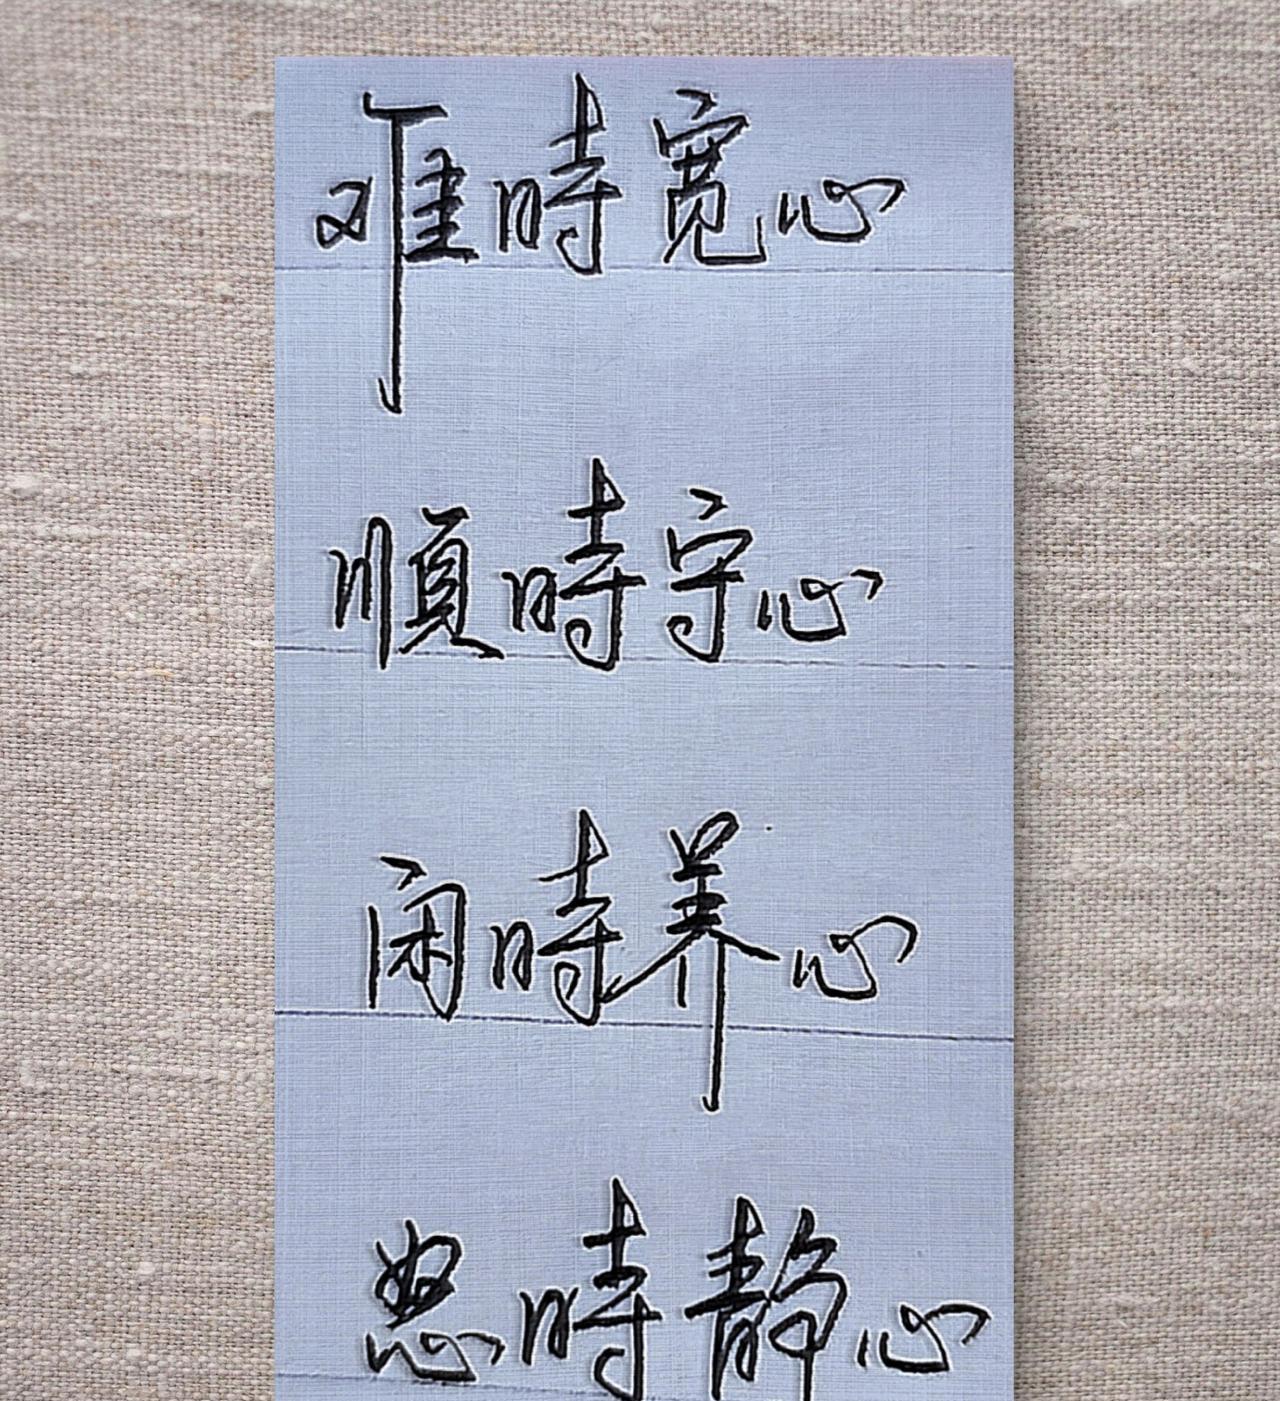 难時宽心
順時守心
闲時养心
怒時静心